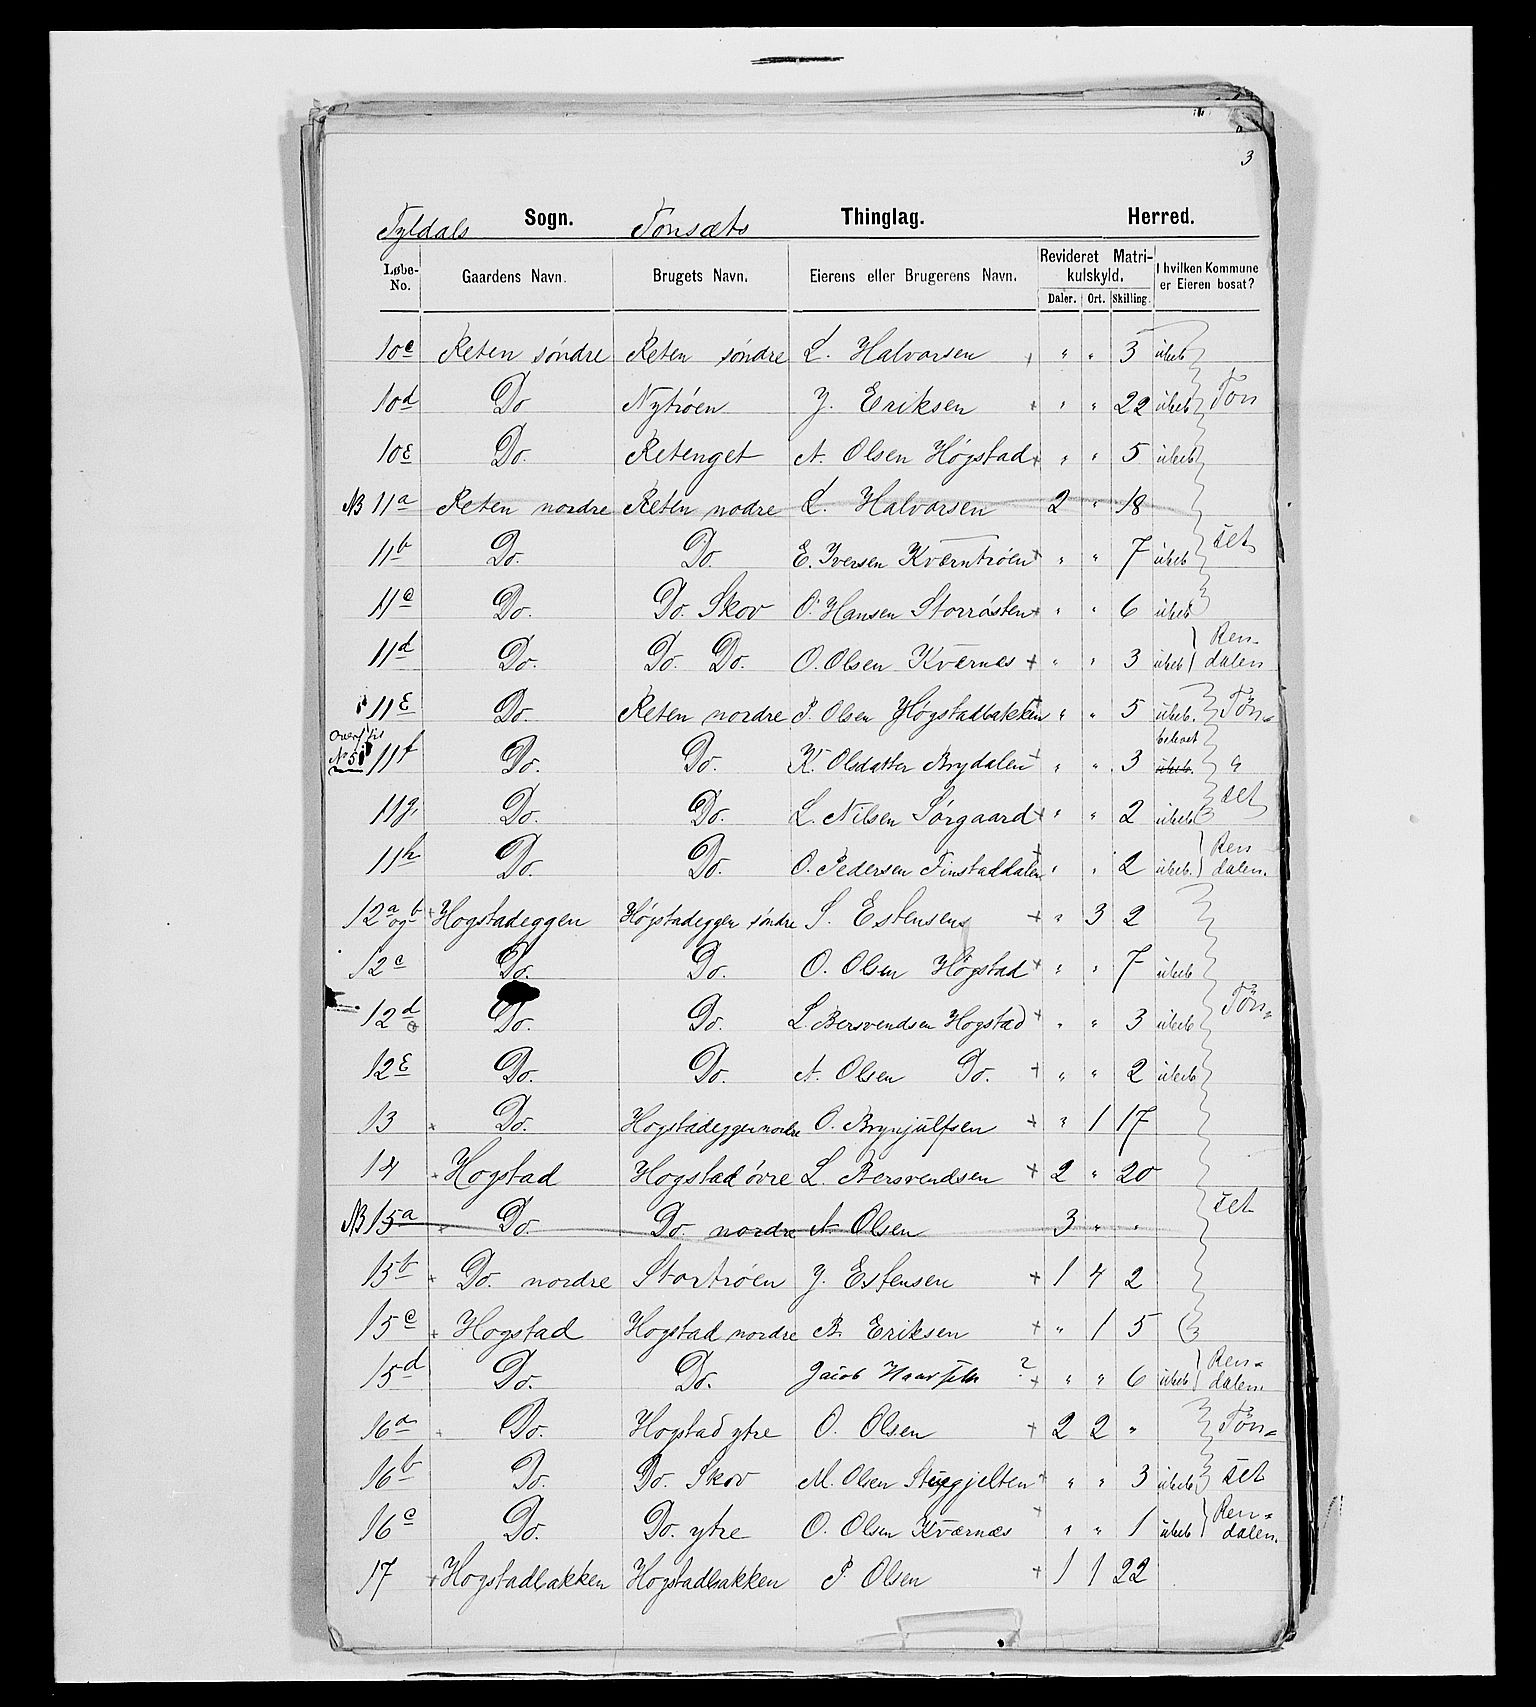 3
Tyldals Sogn. Tønsæts Thinglag. Herred.
Løbe-No. Gaardens Navn. Brugets Navn. Eierens eller Brugerens Navn. Revideret Matrikulskyld. Daler. Ort. Skilling. I hvilken Kommune er Eieren bosat?
10c Reten søndre Reten søndre L. Halvorsen + " " 3 ubeb
10d Do Nytrøen J. Eriksen + " " 22 ubeb Tøn
10e Do. Retenget A. Olsen Høgstad + " " 5 ubeb
NB 11a Reten nordre Reten nodre L. Halvorsen 2 " 18
11b Do. Do. E. Iversen Kværntrøen + " " 7 ubeb set
11c Do. Do. Skov O. Hansen Storrøsten + " " 6 ubeb
11d Do. Do. Do. O. Olsen Kværnes + " " 3 ubeb Rendalen
11e Do. Reten nordre P. Olsen Høgstadbakken + " " 5 ubeb. Tøn=
No 51 11f Do. Do. K. Olsdatter Brydalen + " " 3 beboet ubeb. "
11g. Do. Do. L. Nilsen Sørgaard + " " 2 ubeb set
11h Do. Do. O. Pedersen Finstaddalen + " " 2 ubeb. Rendalen.
12a og b + Hogstadeggen Høgstadeggen søndre S. Estensens + " 3 2
12c Do. Do. O. Olsen Høgstad + " " 7 ubeb
12d Do. Do. L. Bersvendsen Hogstad + " " 3 ubeb Tøn=
12e Do. Do. A. Olsen Do. + " " 2 ubeb
13 + Do. Hogstadeggen nordre O. Brynjulfsen + " 1 17
14 + Hogstad Hogstad øvre L. Bersvendsen + 2 " 20
NB 15a + Do. Do. nordre A. Olsen 3 " " set
15b + Do. nordre Stortrøen J. Estensen + 1 4 2
15c + Hogstad Hogstad nordre B. Eriksen + " 1 5
15d Do. Do. Jacob Haarset ? + " " 6 ubeb Ren=dalen.
16a + Do. Hogstad ytre O. Olsen + 2 2 " Tøn=
16b Do. Do. Skov M. Olsen Stuegjelten + " " 3 ubeb set
16c Do. Do. ytre O. Olsen Kværnæs + " " 1 ubeb Ren=dalen.
17 + Hogstadbakken Hogstadbakken P. Olsen + 1 1 22